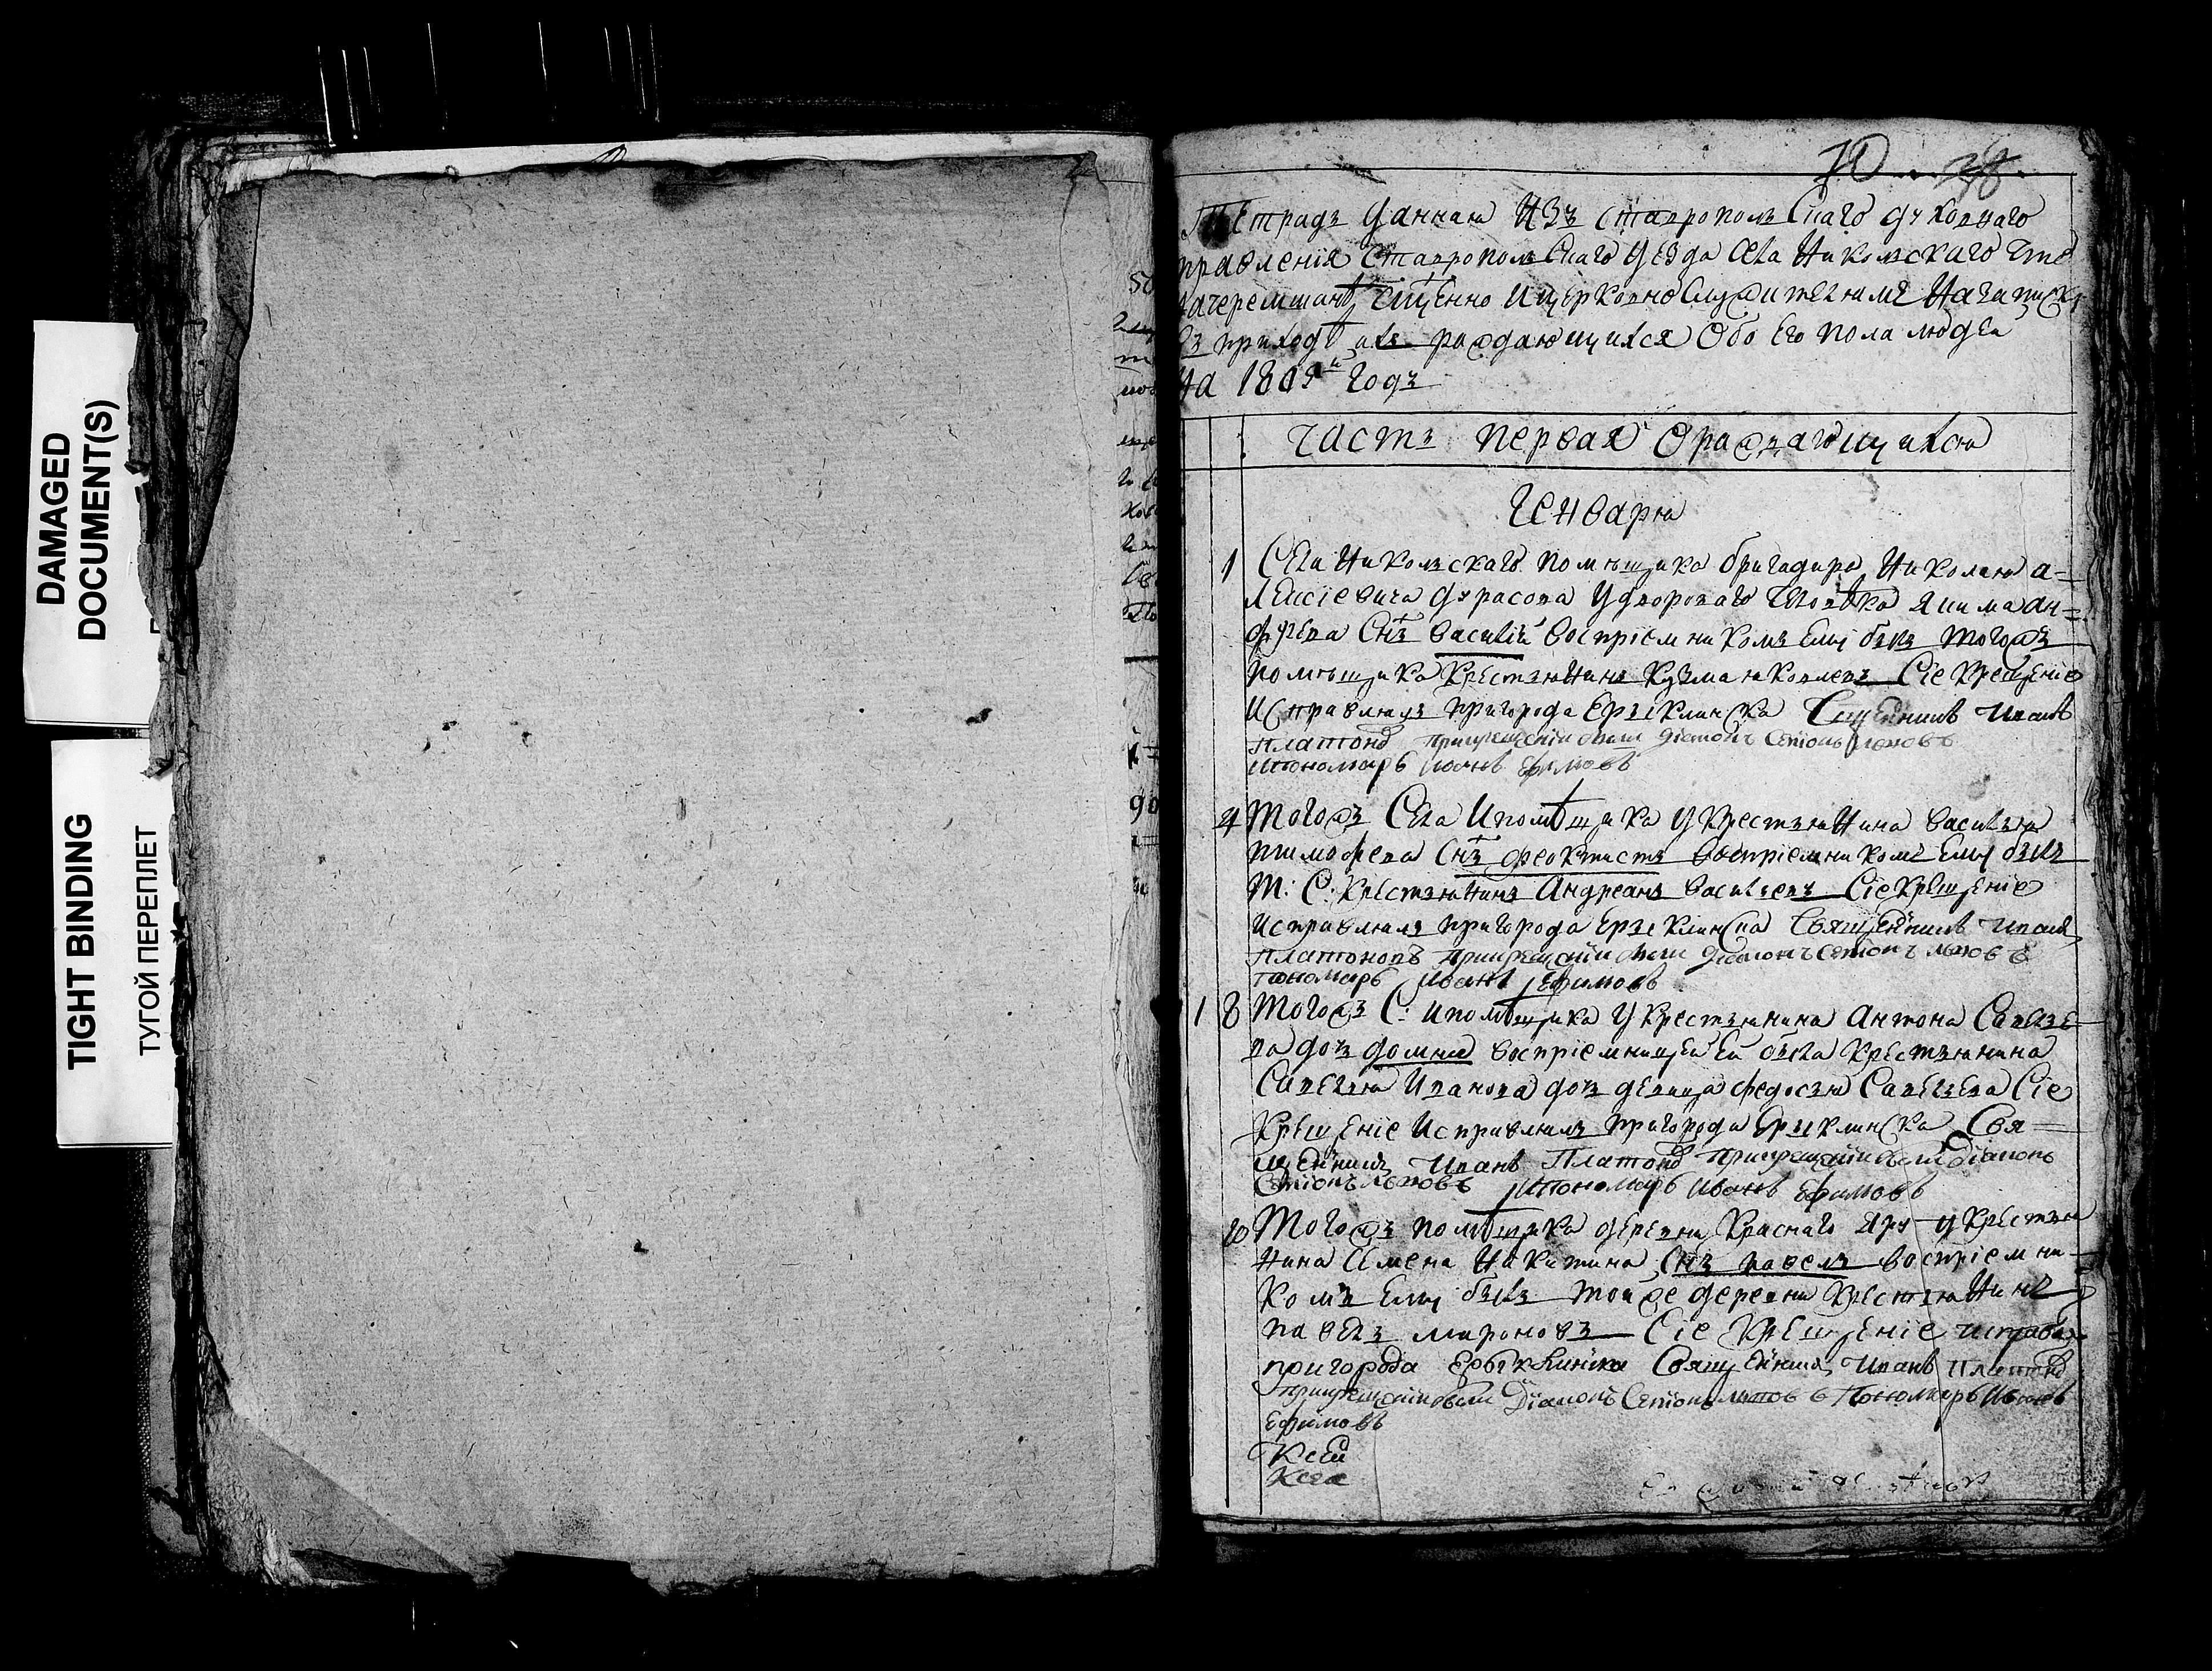 DAMAGED
DOCUMENT(S)
TIGHT BINDING
ТУГОЙ ПЕРЕПЛЕТ
Тетрадь данная изъ ставропольскаго духовнаго
правления ставропольскаго уезда села Никольскаго что
начеремшанѣ сщенно ицерковно служителямъ
въ приходѣ ихъ раждающихся обоего пола людеи
на 1805 годъ
часть первая ораждающихся
Генваря
1 Села Никольскаго помещика бригадира Николая а=
лексiевича дурасова удвороваго человѣка якима ан=
Снъ василiй воспрiемникомъ ему былъ тогожъ
помещика крестьянинъ кузма яковлевъ Сiе крещенiе
исправлялъ пригорода ерыклинска Сщенникъ иванъ
платоновъ дiаконъ Семiонъ
пономарь иванъ ефимовъ
4 тогожъ Села ипомѣщика укрестьянина василья
тимофеева Снъ феоктистъ воспрiемникомъ ему былъ
т: С: крестьянинъ андреянъ васильевъ Сiе крещенiе
исправлялъ пригорода ерыклинска Священникъ иванъ
платоновъ дiаконъ Семiонъ
пономарь иванъ ефимовъ
1 8 тогожъ С: ипомѣщика укрестьянина антона Савелье
ва дочь домна воспрiемницеи еи была крестьянина
Савелья иванова дочь девица федосья Савельева Сiе
крещенiе исправлялъ пригорода ерыклинска Свя=
щенникъ иванъ платоновъ дiаконъ
Семiонъ пономарь иванъ ефимовъ
10 тогожъ помѣщика деревни краснаго яру укрестья
нина Семена Никитина Снъ павелъ воспрiемни=
комъ ему былъ тоиже деревни крестьянинъ
павелъ мироновъ Сiе крещенiе
пригорода ерыклинска Священникъ иванъ платоновъ
дiаконъ Семiонъ пономарь иванъ
ефимовъ